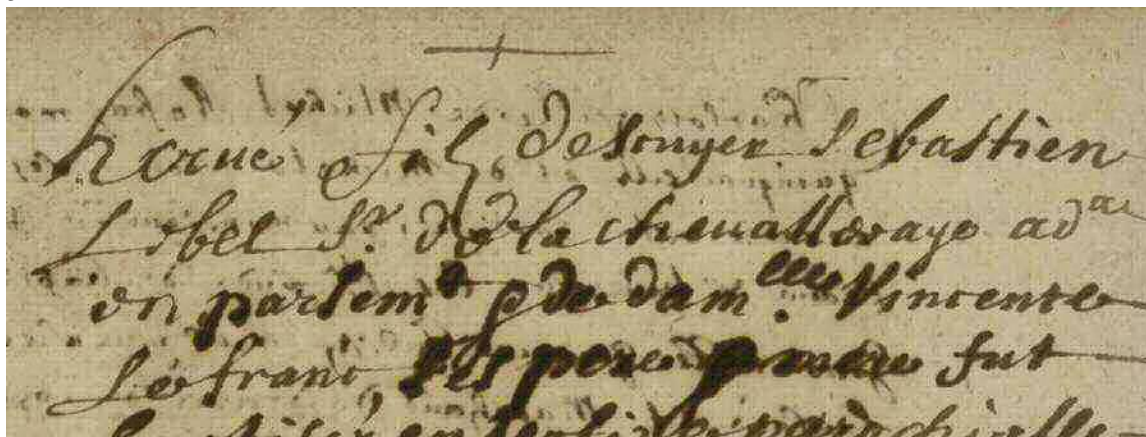 hervé filz d'escuyer Sebastien
Lebel Sr. de la chevalleraye adat
en parlemt et de damelle Vincente
Le franc, ses pere et mere fut